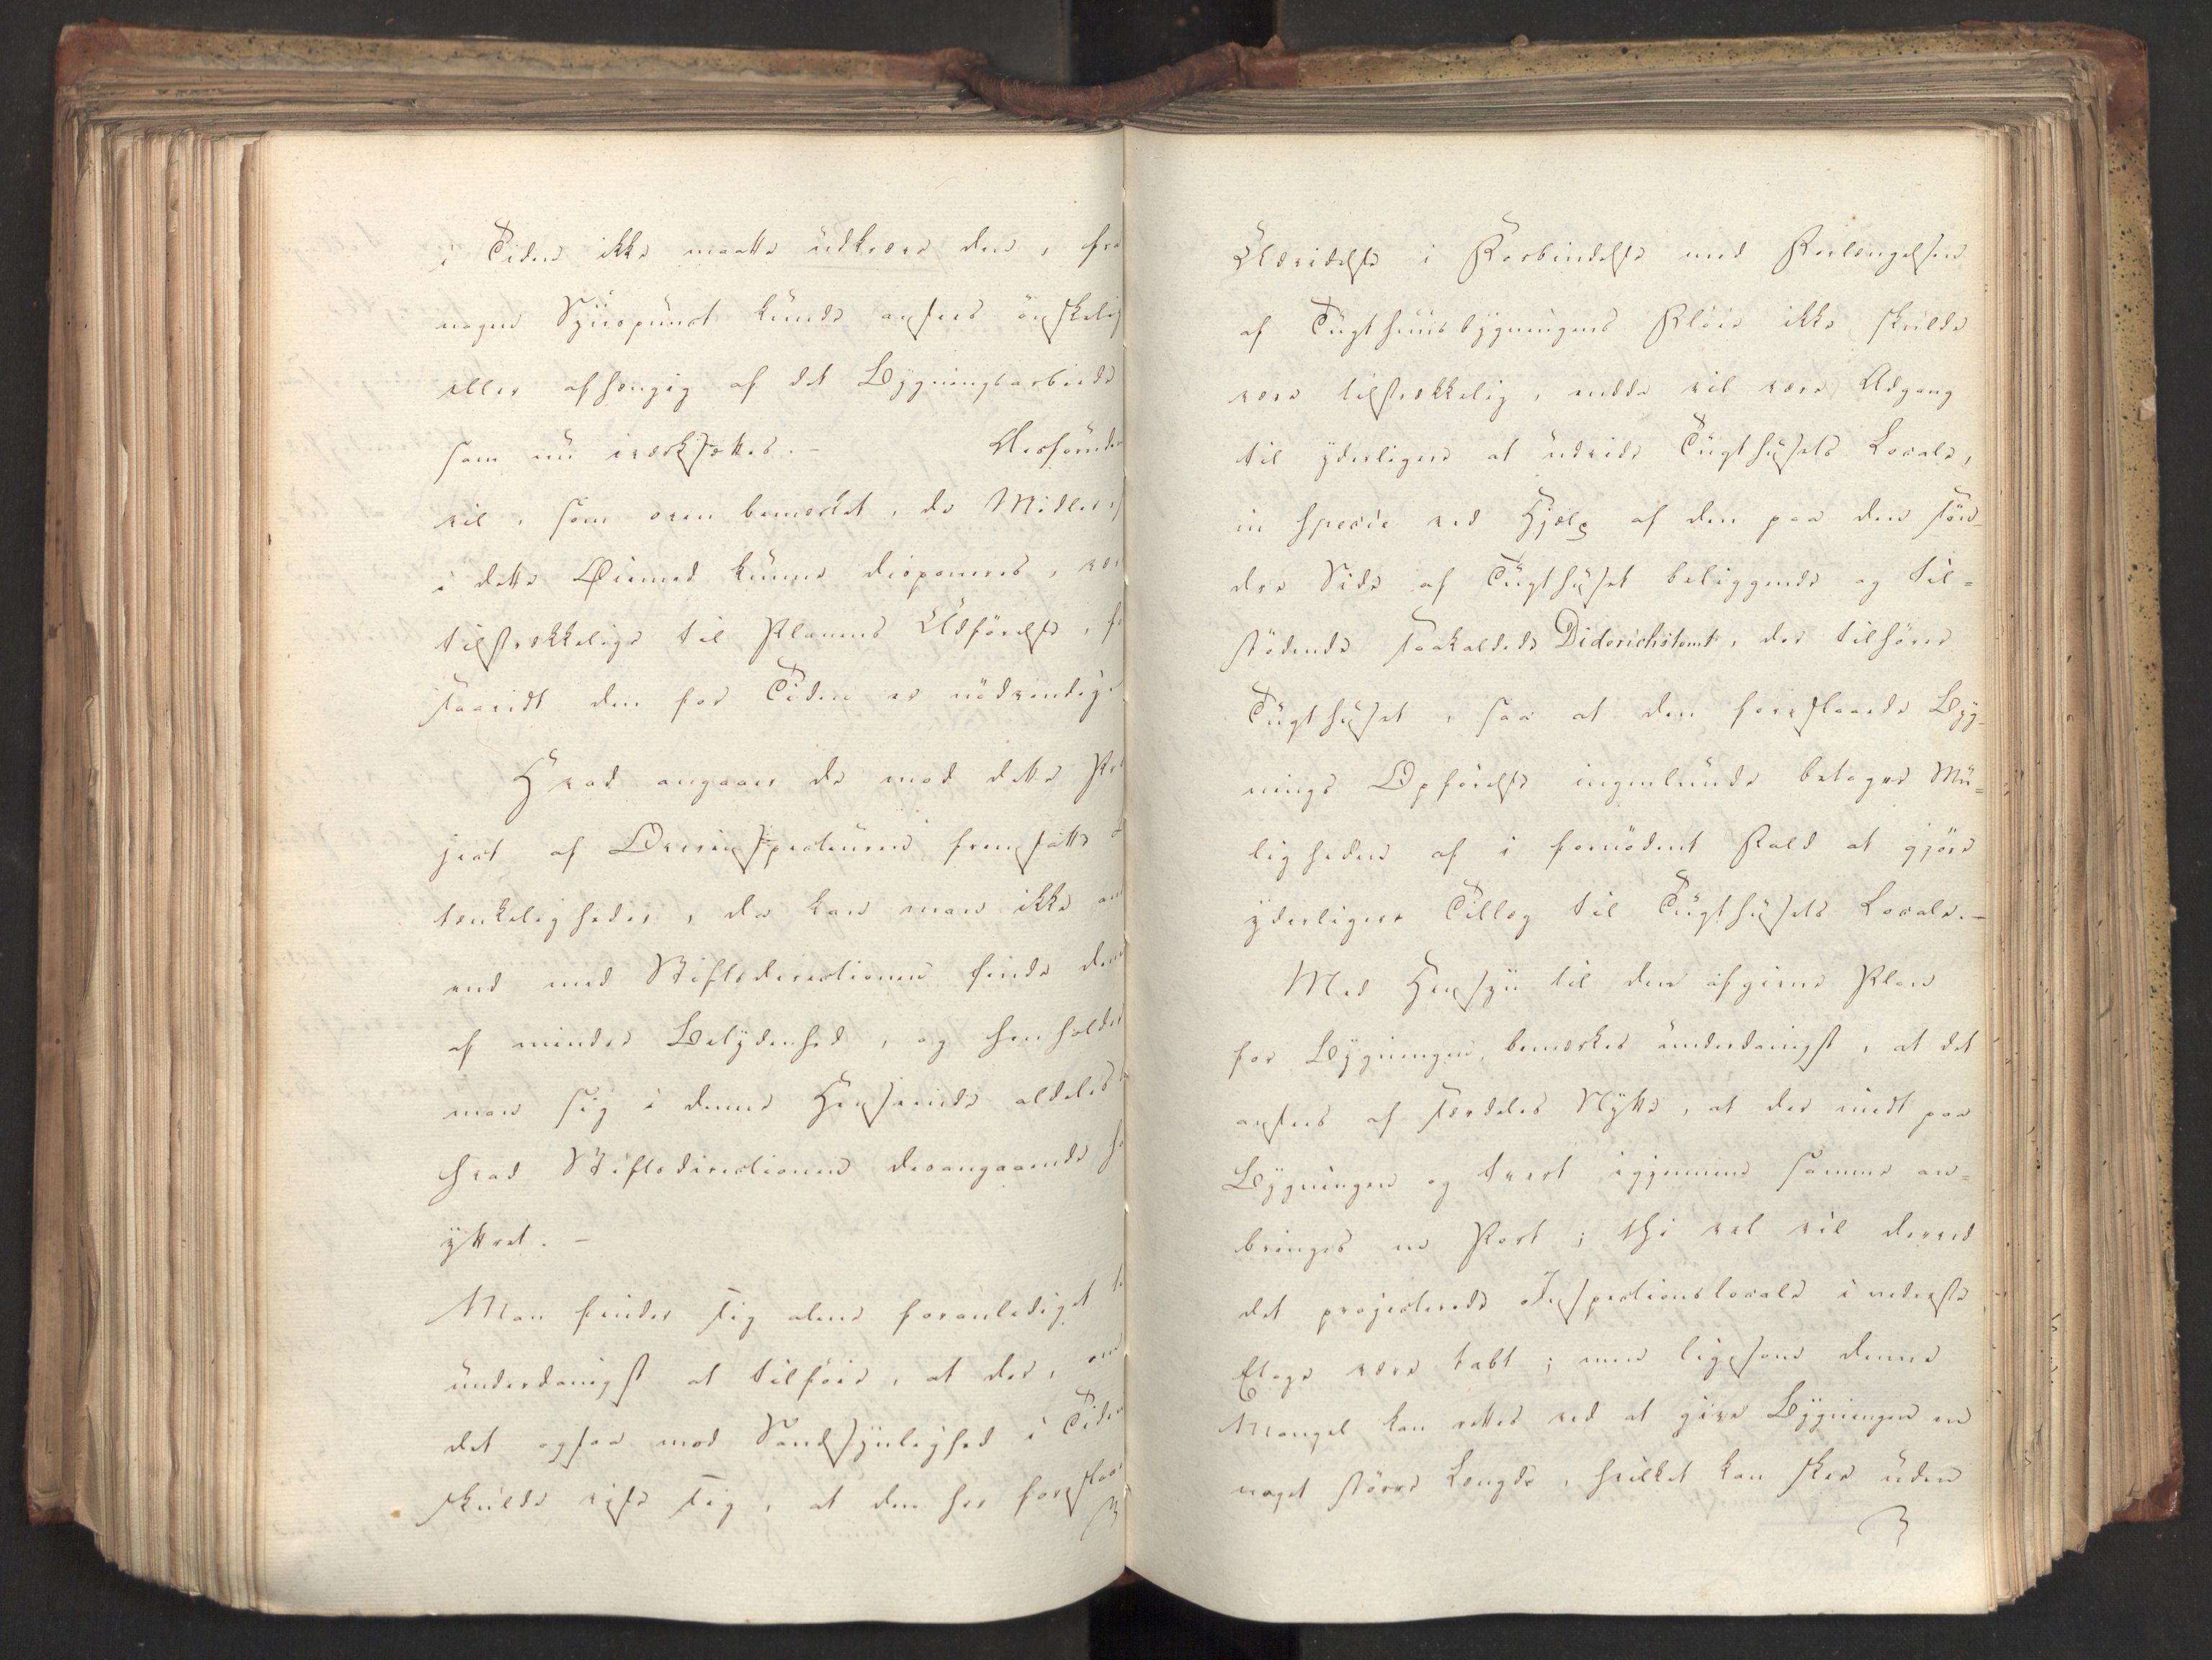 i Tiden ikke maatte udkræve den, fra
nogen Synspunct kunde ansees ønskelig
eller afhængig af det Bygningsarbeide
som nu iværksættes.- Herforuden
vil, som oven bemærket, de Midler,
i dette Øiemed kunne disponeres, vær
tilstrækkelige til Planens Udførelse, f
saavidt den for Tiden er nødvendig.
Hvad angaaer de mod dette Pro
ject af Overinspecteuren fremsatte
tænkeligheder, da kan man ikke an
end med Stiftsdirectionen finde dem
af mindre Betydenhed, og henholder
man sig i denne Henseende aldeles
hvad Stiftsdirectionen desangaaende h
yttret.-
Man finder sig alene foranlediget t
underdanigst at tilføie, at der, om
det ogsaa mod Sandsynlighed i Tiden
skulde vise sig, at den her foreslaa
Udvidelse i Forbindelse med Forlængelsen
af Tugthuusbygningens Fløie ikke skulde
være tilstrækkelig, endda vil være Adgang
til yderligere at udvide Tugthusets Locale,
in specie ved Hjelp af den paa den søn-
dre Side af Tugthuset beliggende og til=
stødende saakaldede Diderichstomt, der tilhører
Tugthuset, saa at den foreslaaede Byg-
nings Opførelse ingenlunde betager Mu=
ligheden af i fornødent Fald at gjøre
yderligere Tillæg til Tugthusets Locale.-
Med Hensyn til den afgivne Plan
for Bygningen, bemærkes underdanigst, at det
ansees af særdeles Nytte, at der midt paa
Bygningen og tvert igjennem samme an=
bringes en Port; thi vel vil derved
det projecterede Inspectionslocale i nederste
Etage være tabt; men ligesom denne
Mangel kan rettes ved at give Bygningen en
noget større Længde, hvilket kan skee uden